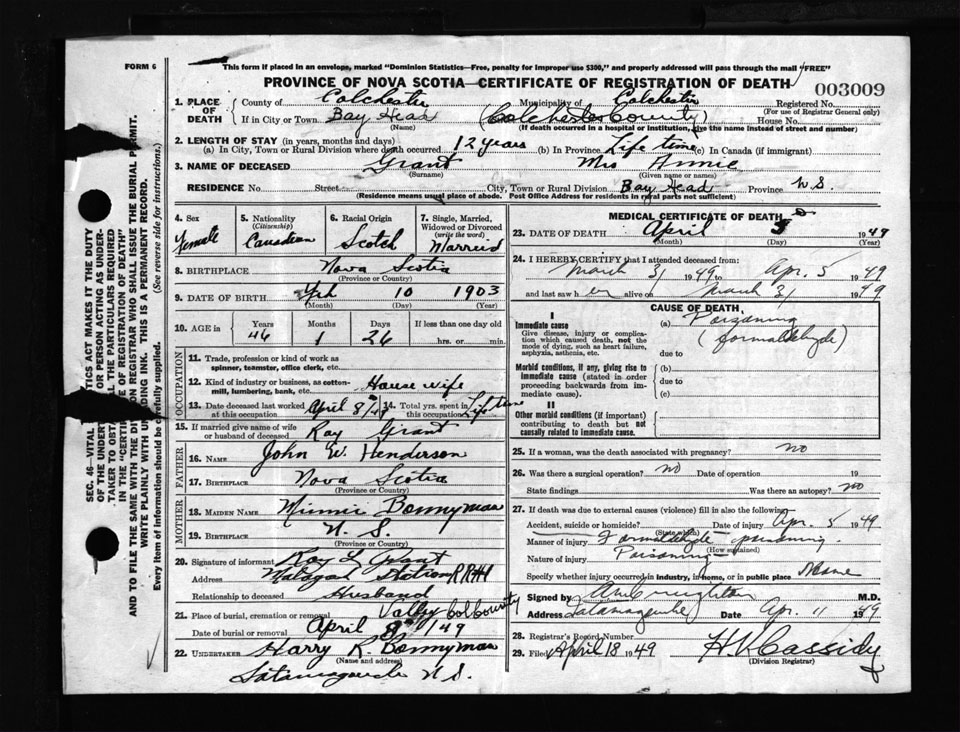 FORM 6
This form if placed in an envelope, marked "Dominion Statistics—Free, penalty for improper use $300," and properly addressed will pass through the mail "FREE"
PROVINCE OF NOVA SCOTIA—CERTIFICATE OF REGISTRATION OF DEATH
003009
1. PLACE OF DEATH County of Colchester Municipality of Colchester Registered No.
(For use of Registrar General only)
If in City or Town Bay Head (Colchester County) House No.
(Name) (If death occurred in a hospital or institution, give the name instead of street and number)
2. LENGTH OF STAY (in years, months and days)
(a) In City, Town or Rural Division where death occurred 12 years (b) In Province Life time (c) In Canada (if immigrant)
3. NAME OF DECEASED Grant Mrs Annie
(Surname) (Given name or names)
RESIDENCE No. Street City, Town or Rural Division Bay Head Province N.S.
(Residence means usual place of abode. Post Office Address for residents in rural parts not sufficient)
4. Sex Female
5. Nationality (Citizenship) Canadian
6. Racial Origin Scotch
7. Single, Married, Widowed or Divorced (write the word) Married
8. BIRTHPLACE Nova Scotia
(Province or Country)
9. DATE OF BIRTH 10 1903
(Month) (Day) (Year)
10. AGE in Years Months Days If less than one day old
46 1 26 hrs. or min.
OCCUPATION
11. Trade, profession or kind of work as spinner, teamster, office clerk, etc.
12. Kind of industry or business, as cotton-mill, lumbering, bank, etc. House wife
13. Date deceased last worked at this occupation April
14. Total yrs. spent in this occupation Life time
15. If married give name of wife or husband of deceased Ray Grant
FATHER
16. Name John W. Henderson
17. BIRTHPLACE Nova Scotia
(Province or Country)
MOTHER
18. MAIDEN NAME Minnie Bonnyman
19. BIRTHPLACE N. S.
(Province or Country)
20. Signature of informant Ray L Grant
Address Station RR#1
Relationship to deceased Husband
21. Place of burial, cremation or removal Valley Col County
Date of burial or removal April 8th/49
22. UNDERTAKER Harry R. Bonnyman
(Name and address)
Tatamagouche N.S.
MEDICAL CERTIFICATE OF DEATH
23. DATE OF DEATH April 5 1949
(Month) (Day) (Year)
24. I HEREBY CERTIFY that I attended deceased from:
March 31 1949 to Apr. 5 1949
and last saw her alive on March 31 1949
CAUSE OF DEATH
I
Immediate cause (a) Poisoning
Give disease, injury or complication which caused death, not the mode of dying, such as heart failure, asphyxia, asthenia, etc.
(formaldehyde)
due to
Morbid conditions, if any, giving rise to immediate cause (stated in order proceeding backwards from immediate cause).
(b)
due to
(c)
II
Other morbid conditions (if important) contributing to death but not causally related to immediate cause.
25. If a woman, was the death associated with pregnancy? no
26. Was there a surgical operation? no Date of operation 19
State findings Was there an autopsy? no
27. If death was due to external causes (violence) fill in also the following:
Accident, suicide or homicide? Date of injury Apr. 5 1949
(State which)
Manner of injury Formaldehyde poisoning.
(How sustained)
Nature of injury Poisoning
Specify whether injury occurred in industry, in home, or in public place Home
Signed by M.D.
Address Tatamagouche Date Apr. 11 1949
28. Registrar's Record Number
29. Filed April 18 1949 H Cassidy
(Division Registrar)
SEC. 46—VITAL STATISTICS ACT MAKES IT THE DUTY
OF THE UNDERTAKER OR PERSON ACTING AS UNDER-
TAKER TO OBTAIN ALL THE PARTICULARS REQUIRED
IN THE "CERTIFICATE OF REGISTRATION OF DEATH"
AND TO FILE THE SAME WITH THE DIVISION REGISTRAR WHO SHALL ISSUE THE BURIAL PERMIT.
WRITE PLAINLY WITH UNFADING INK. THIS IS A PERMANENT RECORD.
Every item of information should be carefully supplied. (See reverse side for instructions.)